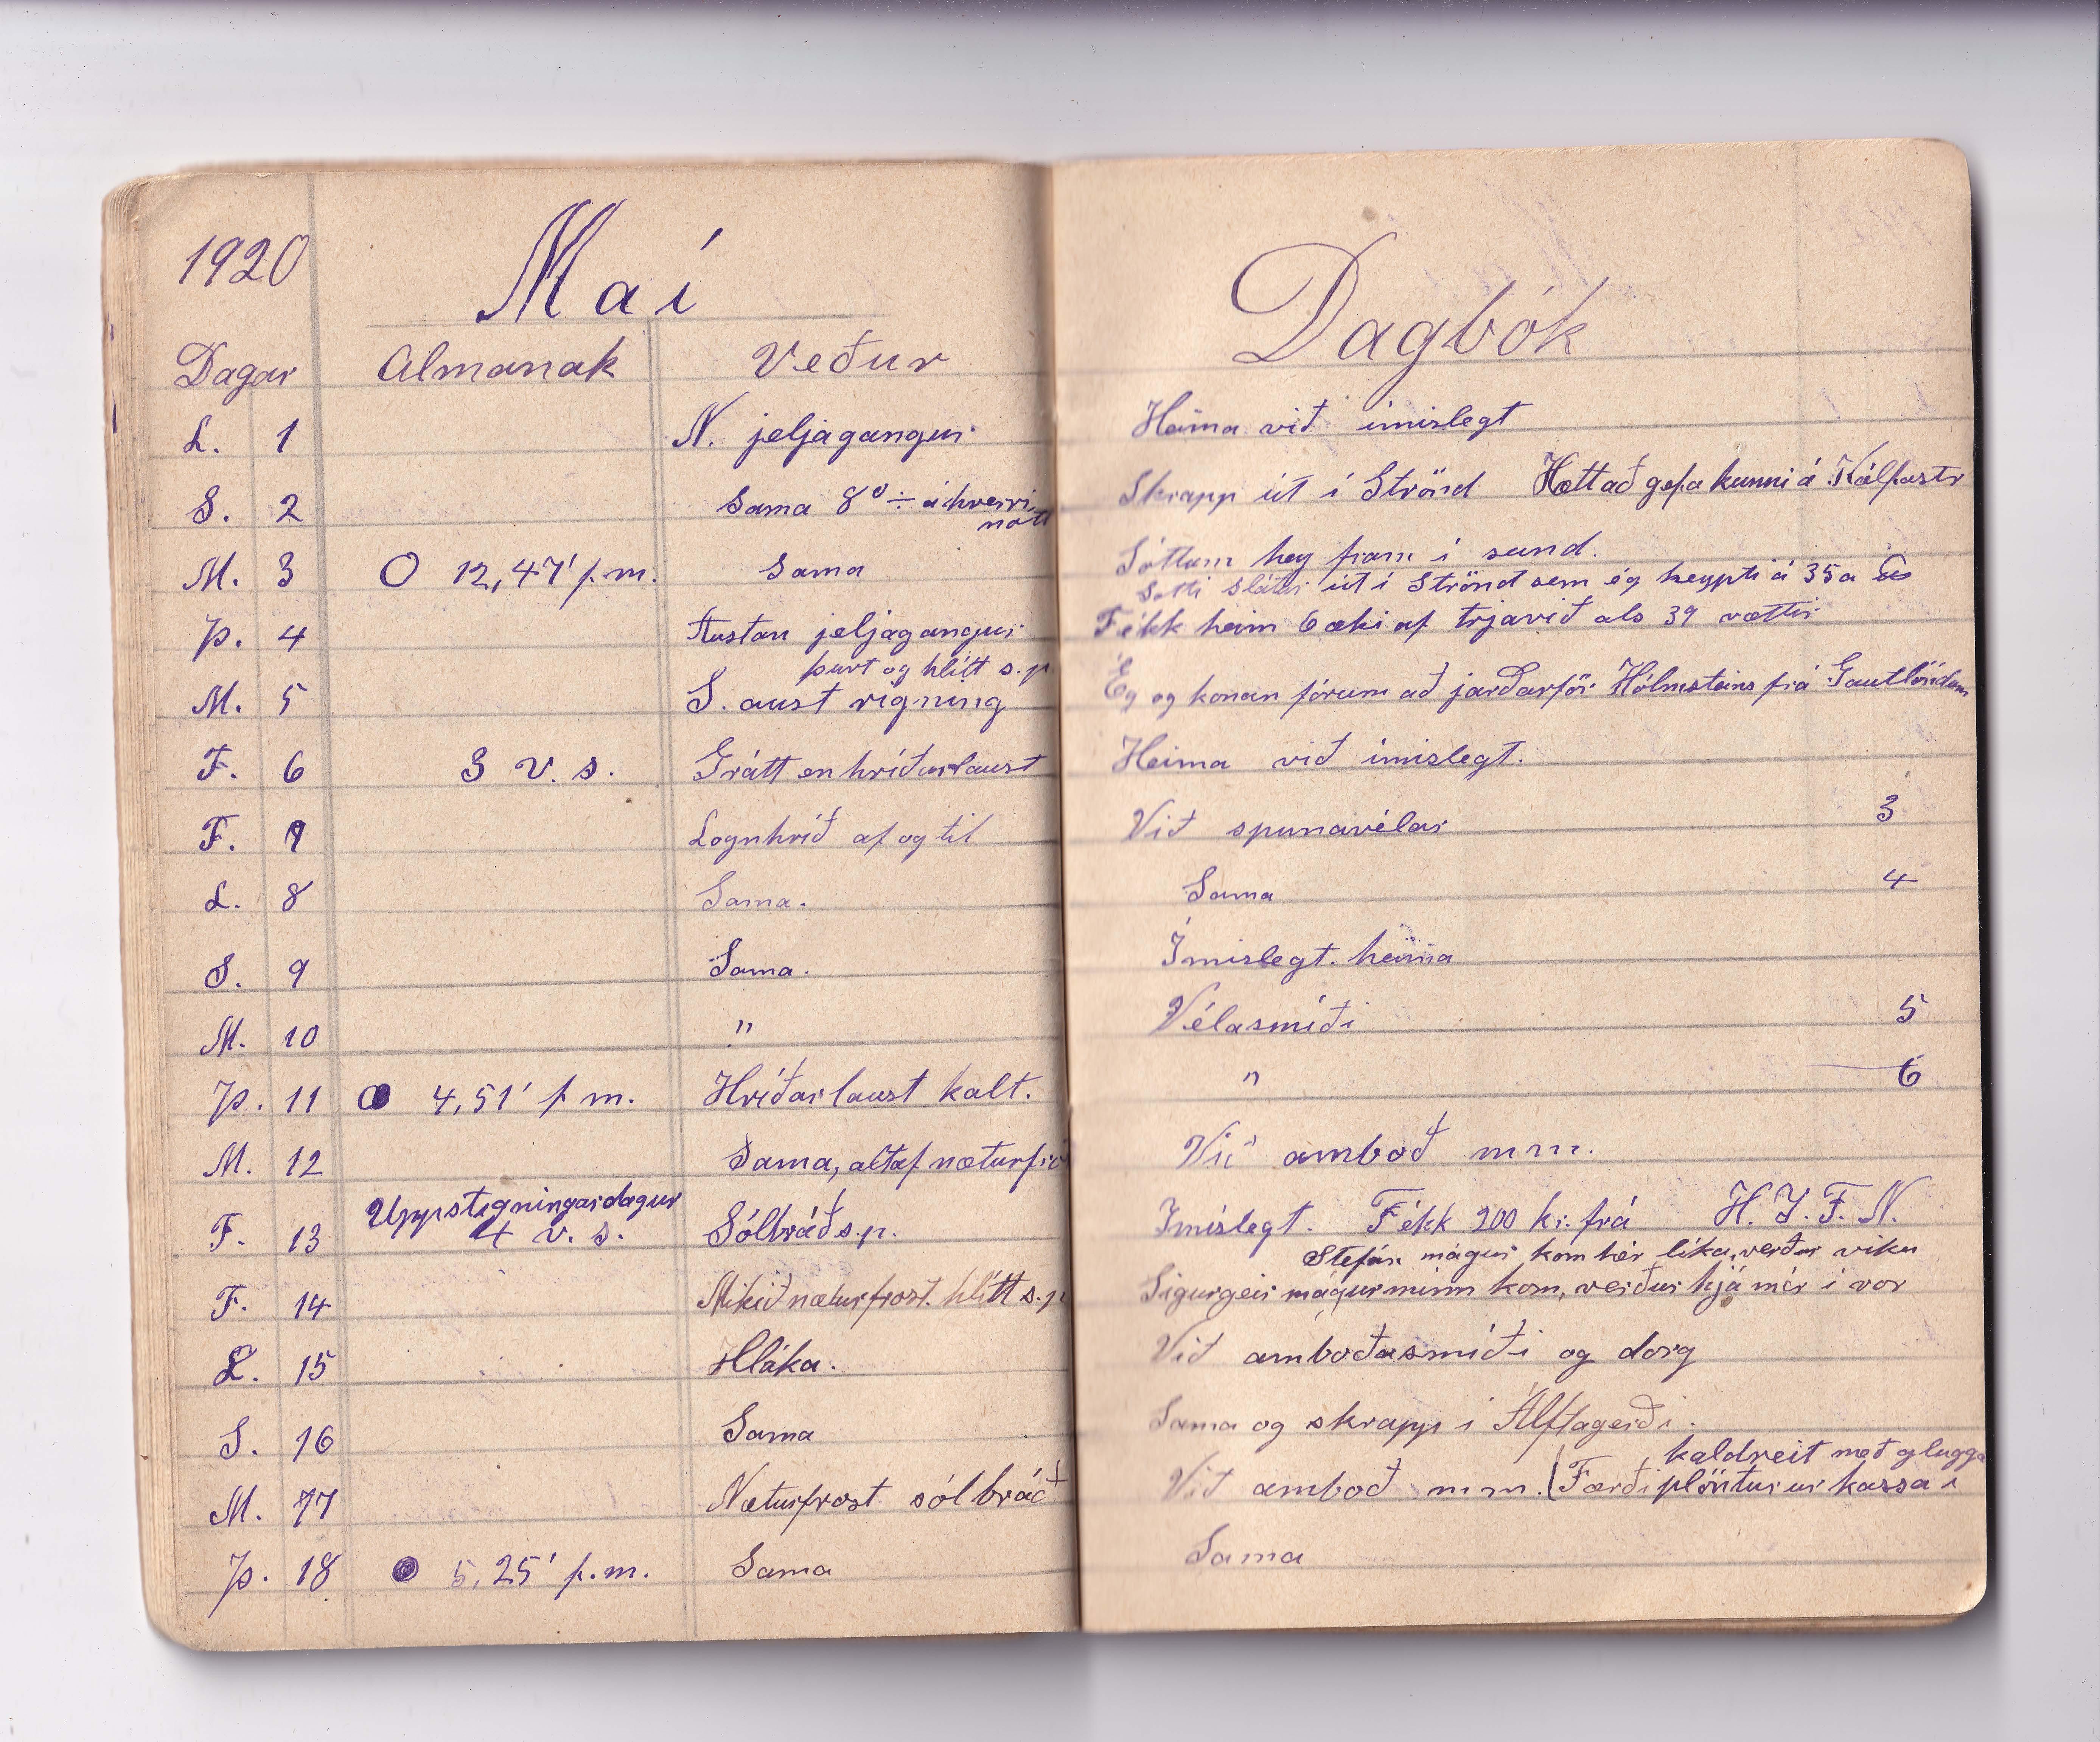 1920 Maí
Dagar Almanak Veður
L. 1 N. jeljagangur
S. 2 Sama 8° ÷ á hverri
nótt
M. 3 O 12,47' f.m. Sama
Þ. 4 Austan jeljagangur
þurt og hlítt s.p.
M. 5 S. aust rigning
F. 6 3 v. s. Grátt en hríðarlaust
F. 7 Lognhríð af og til
L. 8 Sama.
S. 9 Sama.
M. 10 "
Þ. 11 4,51' f m. Hríðarlaust kalt.
M. 12 Sama, altaf næturfro
Uppstigningardagur
F. 13 4 v. s. Sólbráð s.p.
F. 14 Mikið næturfrost. hlítt s.p
L. 15 Hláka.
S. 16 Sama
M. 17 Næturfrost sólbráð
Þ. 18 5,25' f.m. Sama
Dagbók
Heima við ímislegt
Skrapp út í Strönd Hætt að gefa kunni á Kálfastr
Sóttum hey fram í sund.
Sótti slátur út í Strönd sem ég keypti á 35a
Fékk heim 6 æki af trjavið als 39 vættir
Ég og konan fórum að jarðarför Hólmsteins frá Gautlöndum
Heima við ímislegt.
Við spunavélar 3
Sama 4
Ímislegt. heima
Vélasmíði 5
" 6
Við amboð m m.
Imislegt. Fékk 200 kr. frá H. J. F. N.
Stefán mágur kom hér líka, verður viku
Sigurgeir mágur minn kom, verður hjá mér í vor
Við amboðasmíði og dorg
Sama og skrapp í Álftagerði.
kaldreit með glugga
Við amboð m m. (Færði plöntur úr kassa í
Sama